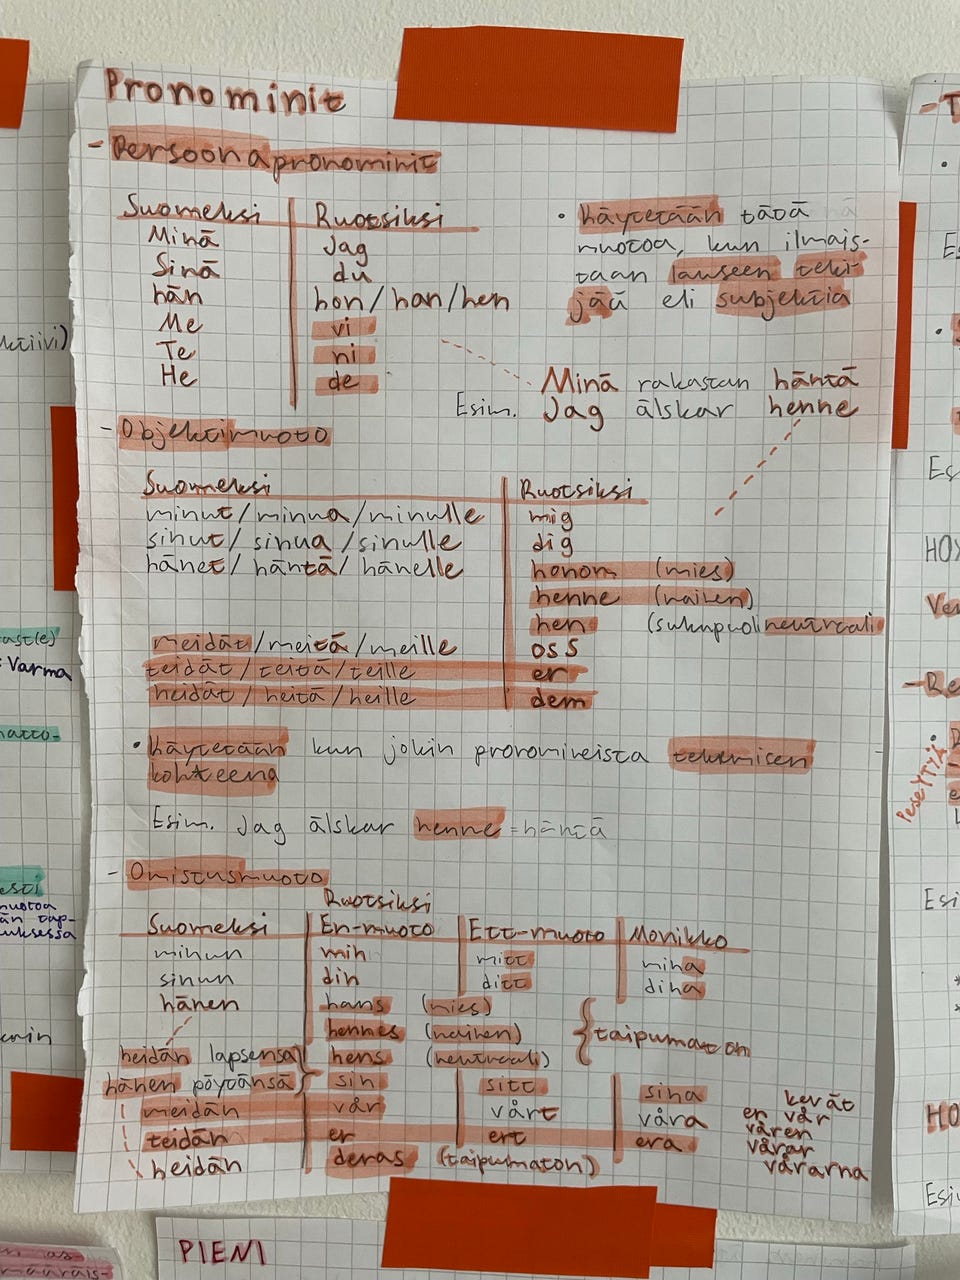 Pronominit
- Persoonapronominit
Suomeksi Ruotsiksi
Minä Jag
Sinä du
hän hon/han/hen
Me vi
Te ni
He de
• Käytetään tätä
muotoa, kun ilmais-
taan lauseen teki-
jää eli subjektia
Minä rakastan häntä
Esim. Jag älskar henne
- Objektimuoto
Suomeksi Ruotsiksi
minut/minua/minulle mig
sinut/sinua/sinulle dig
hänet/häntä/hänelle honom (mies)
henne (nainen)
hen (sukupuolineutraali
meidät/meitä/meille oss
teidät/teitä/teille er
heidät/heitä/heille dem
• Käytetään kun jokin pronomineista tekemisen
kohteena
Esim. Jag älskar henne = häntä
- Omistusmuoto
Ruotsiksi
Suomeksi En-muoto Ett-muoto Monikko
minun min mitt mina
sinun din ditt dina
hänen hans (mies)
hennes (nainen)
hens (neutraali)
taipumaton
heidän lapsensa
hänen pöytänsä sin sitt sina
meidän vår vårt våra
teidän er ert era
heidän deras (taipumaton)
kevät
en vår
våren
vårar
vårarna
PIENI
ktiivi)
Varma
nuotoa
än tap-
uksessa
Pese YTYÄ
Ve
HO
Esi